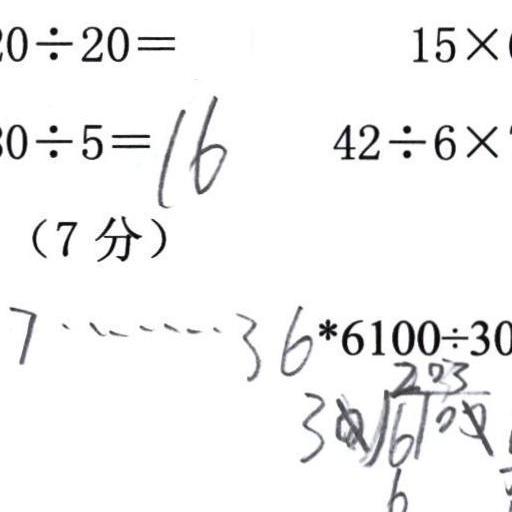 0÷20= 15×
0÷5=16 42÷6×
（7 分）
7……36 *6100÷30
203
30 6100
6